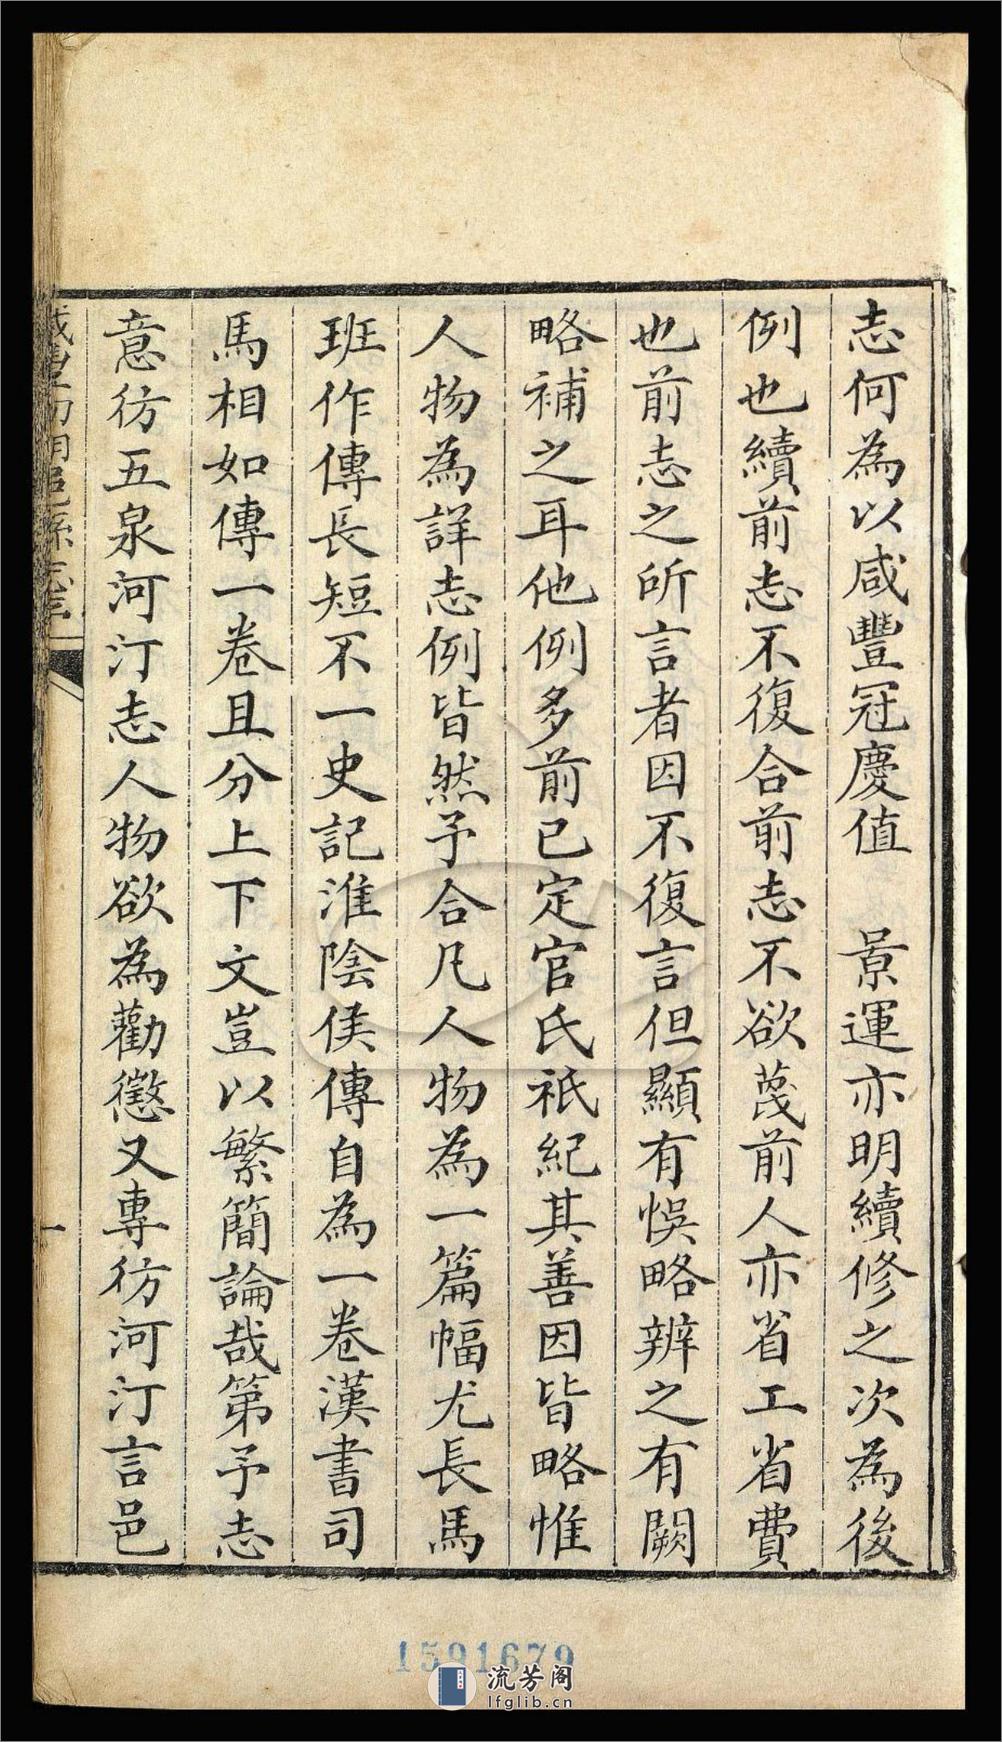 志何為以咸豐冠慶值　景運亦明續修之次為後
例也續前志不復合前志不欲蔑前人亦省工省費
也前志之所言者因不復言但顯有悞略辨之有闕
略補之耳他例多前已定官氏祇紀其善因皆略惟
人物為詳志例皆然予合凡人物為一篇幅尤長馬
班作傳長短不一史記淮陰侯傳自為一卷漢書司
馬相如傳一卷且分上下文豈以繁簡論哉第予志
意彷五泉河汀志人物欲為勸懲又專彷河汀言邑
咸豐初朝邑縣志
一
1591679
流芳阁
lfglib.cn